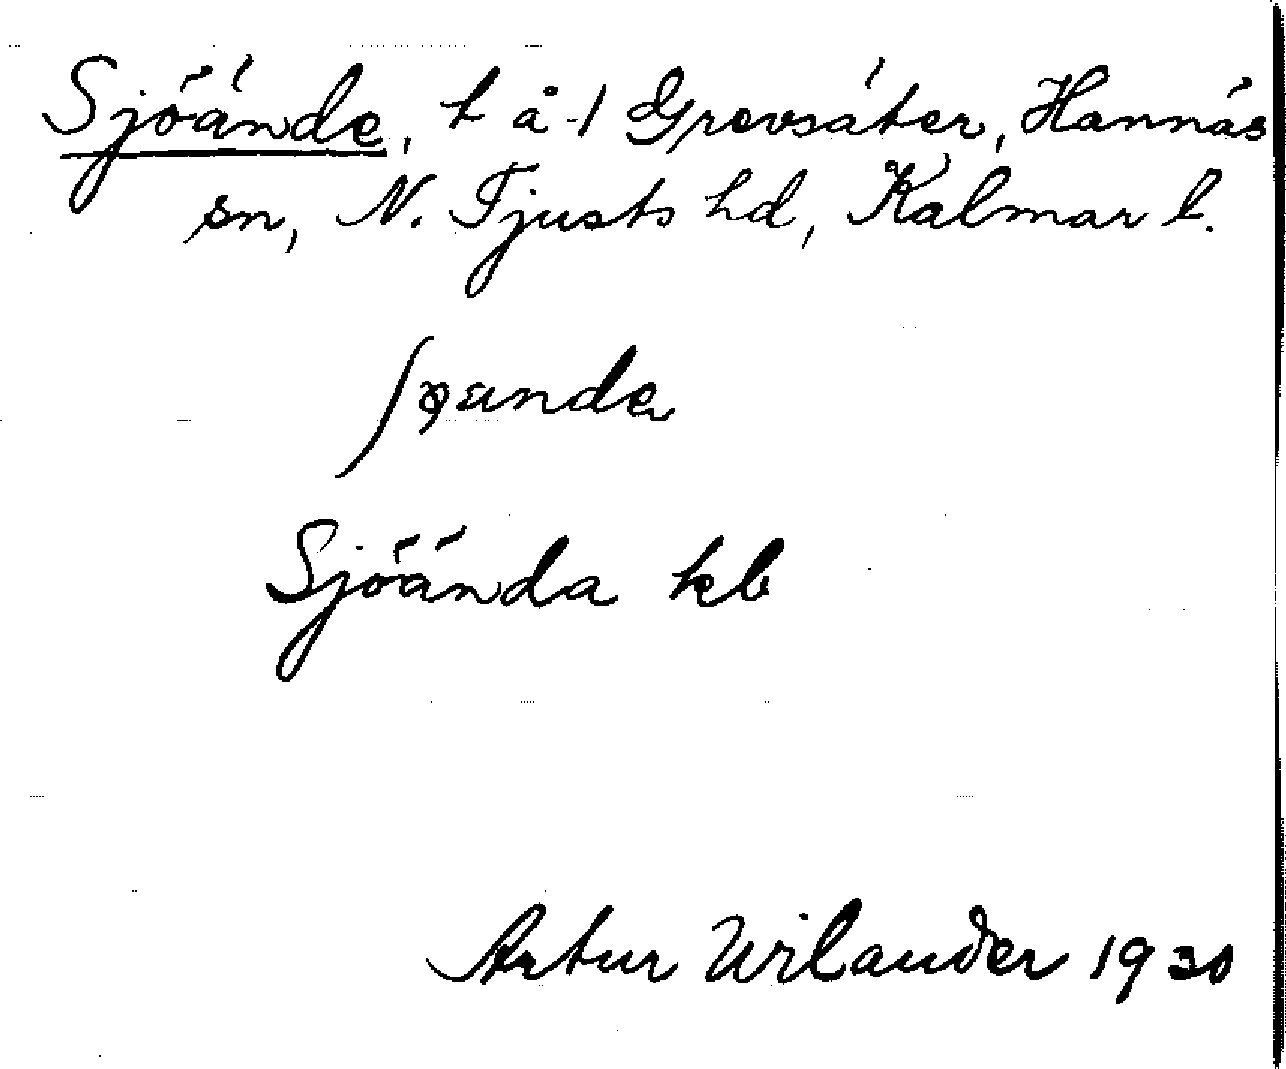 Sjöände, t å -/ Grevsäter, Hannäs
sn, N. Tjusts hd, Kalmar l.
Sjöända kb
Artur Wilander 1930